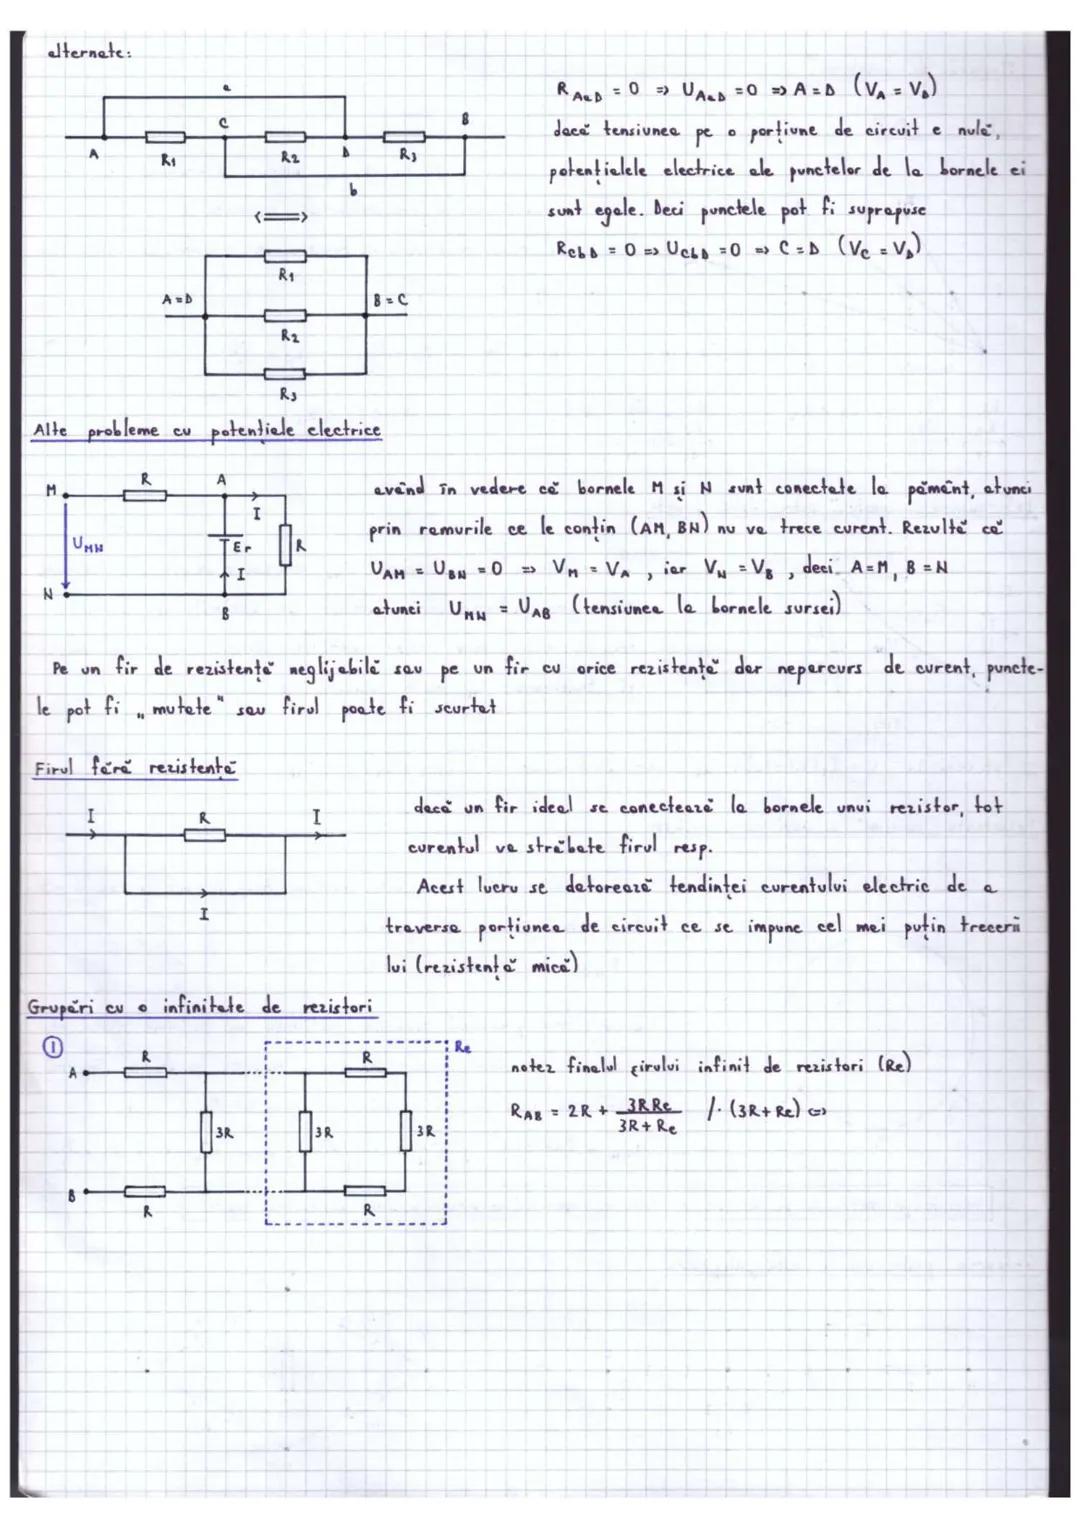 alternate:
a
C
B
A
R1
R2
D
R3
b
R_AaD = 0 => U_AaD = 0 => A = D (V_A = V_D)
dacă tensiunea pe o porțiune de circuit e nulă,
potențialele electrice ale punctelor de la bornele ei
sunt egale. Deci punctele pot fi suprapuse
R_CbD = 0 => U_CbD = 0 => C = D (V_C = V_D)
<=>
R1
A=D
B=C
R2
R3
Alte probleme cu potențiale electrice
M
R
A
I
U_MN
E r
R
I
N
B
având în vedere că bornele M și N sunt conectate la pământ, atunci
prin ramurile ce le conțin (AM, BN) nu va trece curent. Rezultă că
U_AM = U_BN = 0 => V_M = V_A, iar V_N = V_B, deci A=M, B=N
atunci U_MN = U_AB (tensiunea la bornele sursei)
Pe un fir de rezistență neglijabilă sau pe un fir cu orice rezistență dar neparcurs de curent, puncte-
le pot fi „mutate" sau firul poate fi scurtat
Firul fără rezistență
I
R
I
I
dacă un fir ideal se conectează la bornele unui rezistor, tot
curentul va străbate firul resp.
Acest lucru se datorează tendinței curentului electric de a
traversa porțiunea de circuit ce se impune cel mai puțin trecerii
lui (rezistență mică)
Grupări cu o infinitate de rezistori
①
A
R
R
Re
3R
3R
3R
B
R
R
notez finalul șirului infinit de rezistori (Re)
R_AB = 2R + 3RRe / (3R + Re) /· (3R + Re) <=>